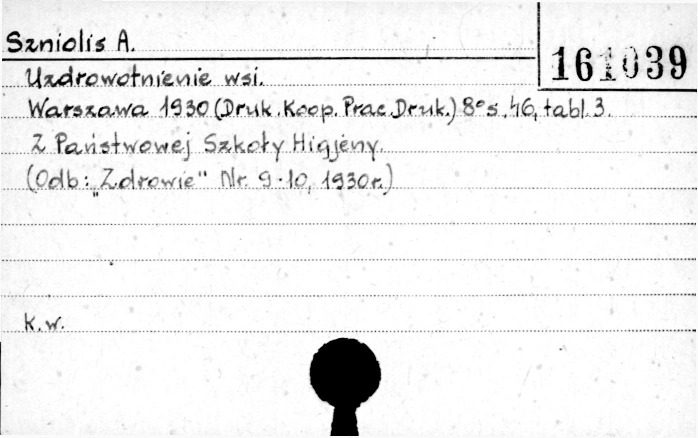 Szniolis A.
161039
Uzdrowotnienie wsi.
Warszawa 1930 (Druk. Koop. Prac. Druk.) 8° s. 46, tabl. 3.
Z Państwowej Szkoły Higjeny.
(Odb: „Zdrowie" Nr. 9-10, 1930r.)
k.w.